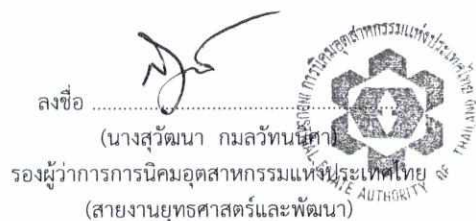 ลงชื่อ
(นางสุวัฒนา กมลวัทนนิศา)
รองผู้ว่าการการนิคมอุตสาหกรรมแห่งประเทศไทย
(สายงานยุทธศาสตร์และพัฒนา)
การนิคมอุตสาหกรรมแห่งประเทศไทย
ESTATE AUTHORITY OF